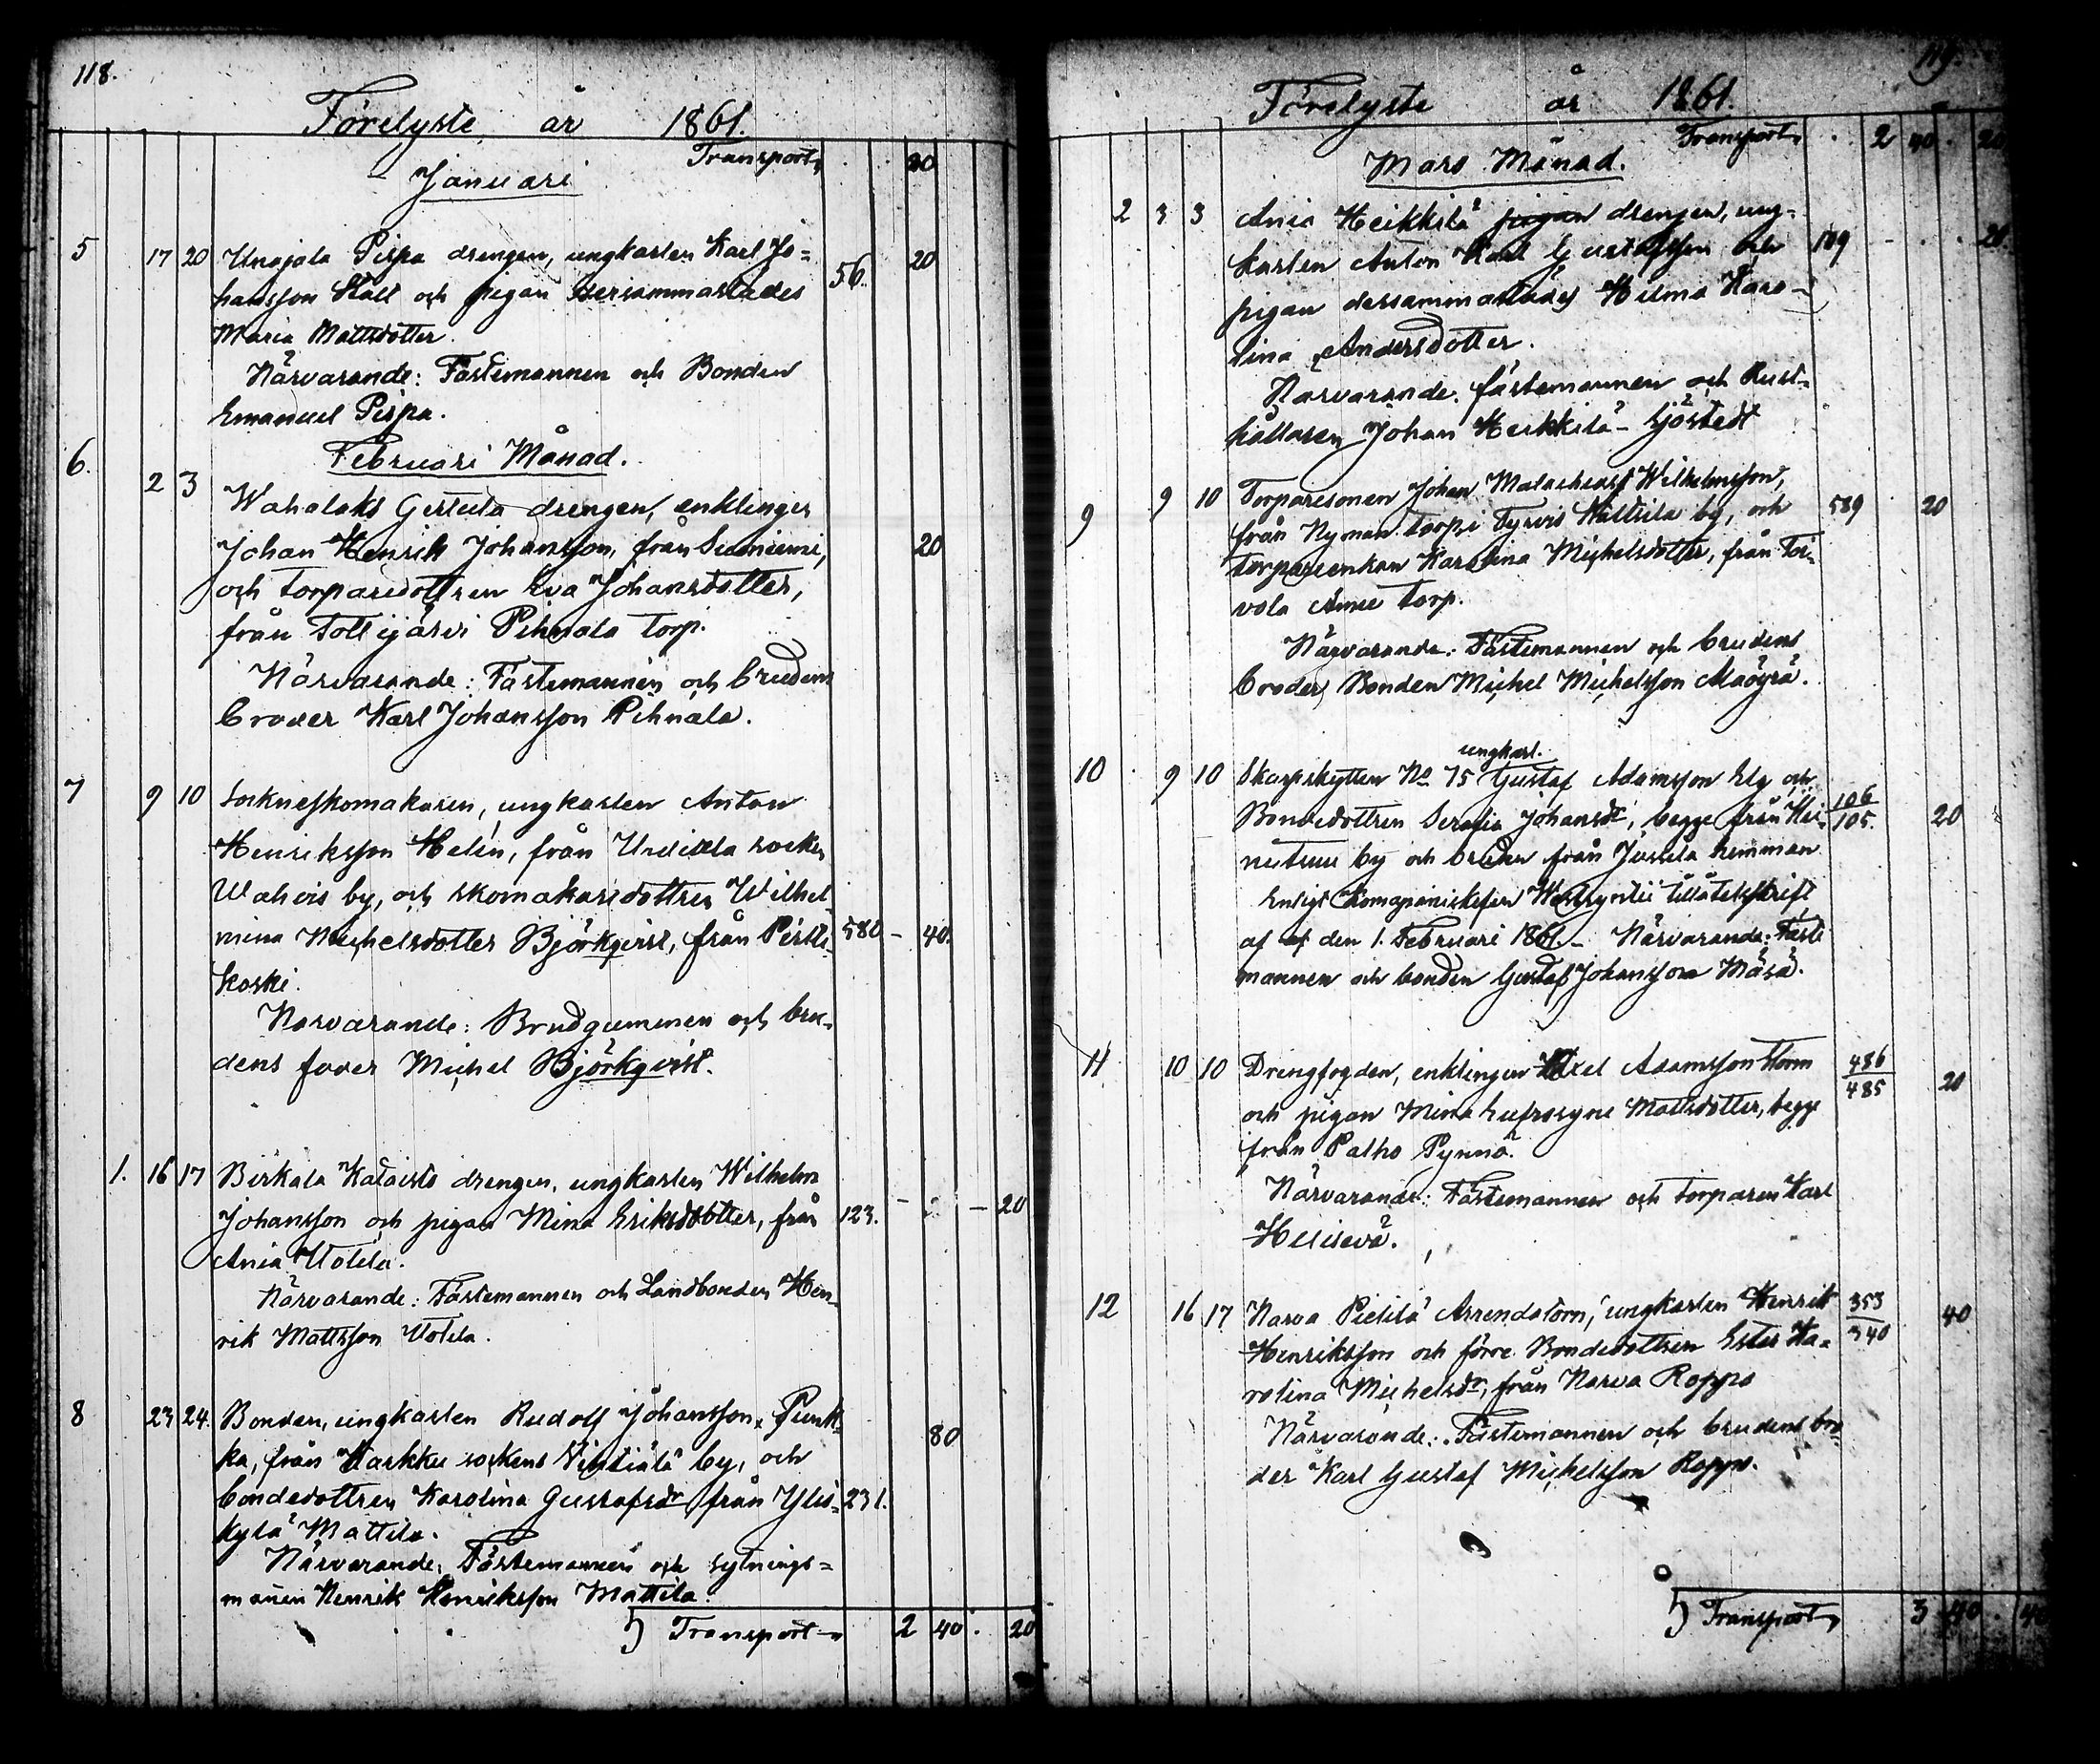 118.
Förelyste år 1861.
Transport 80
Januari
5 17 20 Unajala Pispa drengen, ungkarlen Karl Jo=
hansson Ståll och pigan dersammastädes 56. 20
Maria Mattsdotter.
Närvarande: Fästemannen och Bonden
Emanuel Pispa.
6. Februari Månad.
2 3 Wahalaks Gertula drengen, enklingen
Johan Henrik Johansson, från Suoniemi, 20
och torparedottren Eva Johansdotter,
från Tottijärvi Pihnala torp.
Närvarande: Fästemannen och brudens
broder Karl Johansson Pihnala.
7 9 10 Sockneskomakaren, ungkarlen Anton
Henriksson Helin, från Urdiala socken
Wahois by, och skomakaredottren Wilhel-
mina Michelsdotter Björkqvist, från Pirtti- 580 - 40.
koski.
Närvarande: Brudgummen och bru-
dens fader Michel Björkqvist.
1. 16 17 Birkala Kataisto drengen, ungkarlen Wilhelm
Johansson och pigan Mina Eriksdotter, från 123. - - 20
Ania Uotila.
Närvarande: Fästemannen och Landbonden Hen-
rik Mattsson Uotila.
8 23 24. Bonden, ungkarlen Rudolf Johansson Punk-
ka, från Karkku sockens Vintiälä by, och 80
bondedottren Karolina Gustafsdr från Ylis- 231.
kylä Mattila.
Närvarande: Fästemannen och sytnings=
mannen Henrik Henriksson Mattila.
Transport 2 40. 20
119.
Förelyste år 1861.
Transport . 2 40 . 20
Mars Månad.
2 3 3 Ania Heikkilä pigan drengen, ung=
karlen Anton Karl Gustafsson och 109 - . . 20.
pigan dersammastädes Hilma Karo-
lina Andersdotter.
Närvarande: fästemannen och Rust-
hållaren Johan Heikkilä-Sjöstedt
9 9 10 Torparesonen Johan Malachias Wilhelmsson, 589 20
från Nyman torp i Tyrvis Kaltsila by, och
torpareenkan Karolina Michelsdotter, från Toi-
vola Ame torp.
Närvarande: Fästemannen och brudens
broder, Bonden Michel Michelsson Maöyrä.
ungkarl.
10 9 10 Skarpskytten No 75 Gustaf Adamsson Elg och 106
Bondedottren Serafia Johansdr, begge från Hei- 105. 20
nutune by och bruden från Jussila hemman
Enligt Kompanichefen tillåtelseskrift
af af den 1. Februari 1861.- Närvarande: Fäste
mannen och bonden Gustaf Johansson Mäsä.
11 10 10 Drengfogden, enklingen Axel Adamsson Storm 486
och pigan Mina Eufrosyne Mattsdotter, begge 485 20
från Palho Pynnö.
Närvarande: Fästemannen och torparen Karl
Heiisevä.
12 16 17 Narva Pietilä Arrendatorn, ungkarlen Henrik 353 40
Henriksson och förre Bondedottren Ester Ka- 340
rolina Michelsdr, från Narva Roppo
Närvarande: Fästemannen och brudens bro-
der Karl Gustaf Michelsson Roppo.
Transport 3 40 . 40